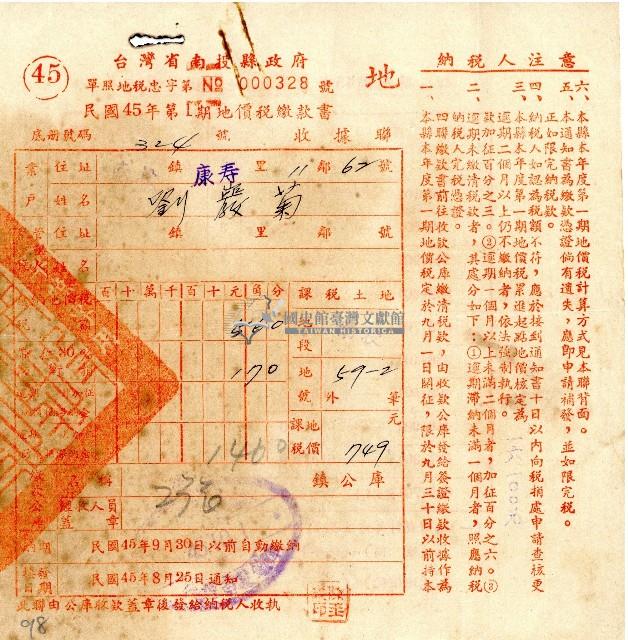 45
台灣省南投縣政府
單照地稅忠字第№ 000328 號
地
民國45年第1期地價稅繳款書
底冊號碼 324 號 收據聯
業 住址 鎮 康寿 里 11 鄰 62 號
戶 姓名 劉嚴菊
管 住址 鎮 里 鄰 號
姓名
百十萬千百十元角分
課稅土地
590
地段
170
地號 59-2
外 筆
課稅地價 749 元
1460
鎮公庫
經收人員蓋章
民國45年9月30日以前自動繳納
民國45年8月25日通知
此聯由公庫收款蓋章後發給納稅人收執
98
國史館臺灣文獻館
TAIWAN HISTORICA
納稅人注意
一、本縣本年度第一期地價稅定於九月一日開征，限於九月三十日以前持本
四聯繳款書前往收款公庫繳清稅款，由收款公庫發給簽證繳款收據作為
納稅人完稅憑證。
二、逾期未繳清稅款者，其處分如下：①逾期滯納未滿一個月者，照應納稅
款加征百分之三。②逾期一個月以上未滿二個月者，加征百分之六。③
逾期二個月以上仍不繳納者，依法強制執行。
三、本縣本年度第一期地價稅累進起點地價核定為
四、納稅人如認為稅額不符，應於接到通知書十日以內向稅捐處申請查核更
正如限完納稅款。
五、本通知書為繳款憑證倘有遺失，應即申請補發，並如限完稅。
六、本縣本年度第一期地價稅計算方式見本聯背面。